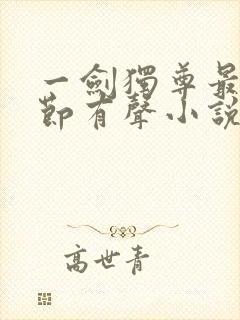 一劍獨尊最
節有聲小說
高世青